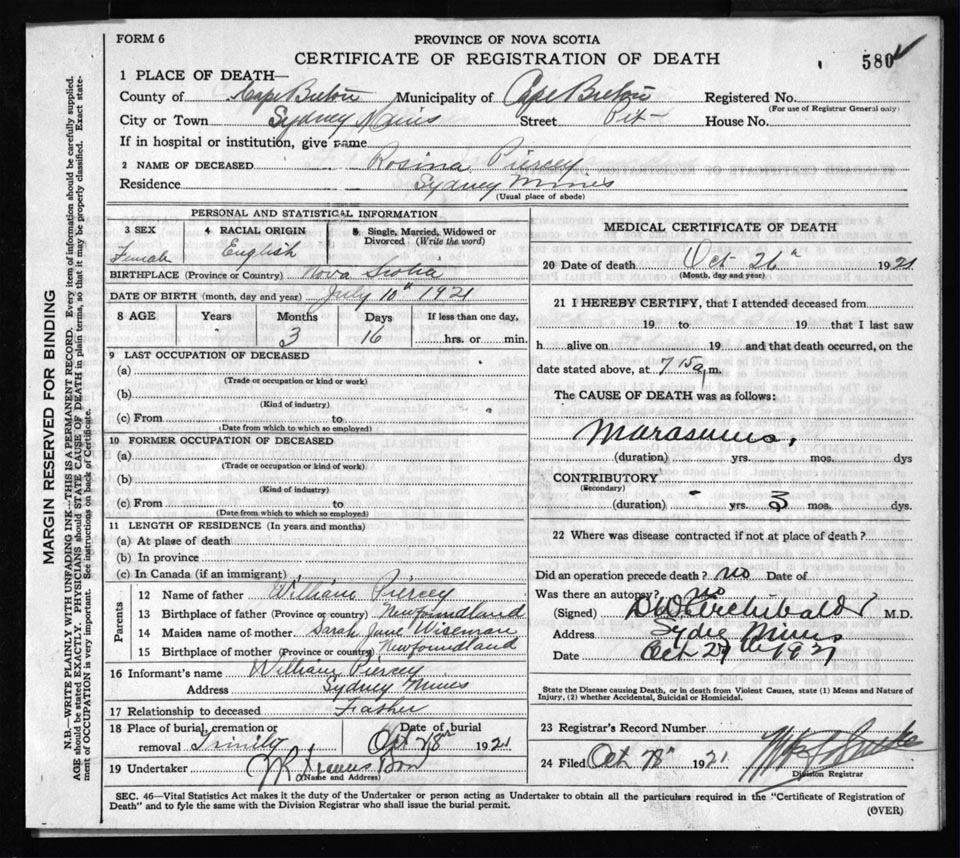 FORM 6
PROVINCE OF NOVA SCOTIA
CERTIFICATE OF REGISTRATION OF DEATH
580
1 PLACE OF DEATH—
County of Cape Breton Municipality of Cape Breton Registered No.
(For use of Registrar General only)
City or Town Sydney Mines Street Pit House No.
If in hospital or institution, give name
2 NAME OF DECEASED Rosina Piercey
Residence Sydney Mines
(Usual place of abode)
PERSONAL AND STATISTICAL INFORMATION
3 SEX
Female
4 RACIAL ORIGIN
English
5 Single, Married, Widowed or Divorced (Write the word)
BIRTHPLACE (Province or Country) Nova Scotia
DATE OF BIRTH (month, day and year) July 10th 1921
8 AGE Years Months Days If less than one day,
3 16 hrs. or min.
9 LAST OCCUPATION OF DECEASED
(a)
(Trade or occupation or kind or work)
(b)
(Kind of industry)
(c) From to
(Date from which to which so employed)
10 FORMER OCCUPATION OF DECEASED
(a)
(Trade or occupation or kind of work)
(b)
(Kind of industry)
(c) From to
(Date from which to which so employed)
11 LENGTH OF RESIDENCE (In years and months)
(a) At place of death
(b) In province
(c) In Canada (if an immigrant)
Parents
12 Name of father William Piercey
13 Birthplace of father (Province or country) Newfoundland
14 Maiden name of mother Sarah Jane Wiseman
15 Birthplace of mother (Province or country) Newfoundland
16 Informant's name William Piercey
Address Sydney Mines
17 Relationship to deceased Father
18 Place of burial, cremation or removal Trinity
Date of burial Oct 28th 1921
19 Undertaker
(Name and Address)
MEDICAL CERTIFICATE OF DEATH
20 Date of death Oct 26th 1921
(Month, day and year)
21 I HEREBY CERTIFY, that I attended deceased from
19 to 19 that I last saw
h alive on 19 and that death occurred, on the
date stated above, at 7.15a.m.
The CAUSE OF DEATH was as follows:
Marasmus,
(duration) yrs. mos. dys
CONTRIBUTORY
(Secondary)
(duration) - yrs. 3 mos. dys.
22 Where was disease contracted if not at place of death?
Did an operation precede death? no Date of
Was there an autopsy? no
(Signed) Archibald M.D.
Address Mines
Date Oct 27th 1921
State the Disease causing Death, or in death from Violent Causes, state (1) Means and Nature of
Injury, (2) whether Accidental, Suicidal or Homicidal.
23 Registrar's Record Number
24 Filed Oct 28th 1921
Division Registrar
SEC. 46—Vital Statistics Act makes it the duty of the Undertaker or person acting as Undertaker to obtain all the particulars required in the "Certificate of Registration of
Death" and to fyle the same with the Division Registrar who shall issue the burial permit.
(OVER)
MARGIN RESERVED FOR BINDING
N.B.—WRITE PLAINLY WITH UNFADING INK—THIS IS A PERMANENT RECORD. Every item of information should be carefully supplied.
AGE should be stated EXACTLY. PHYSICIANS should STATE CAUSE OF DEATH in plain terms, so that it may be properly classified. Exact state-
ment of OCCUPATION is very important. See instructions on back of Certificate.